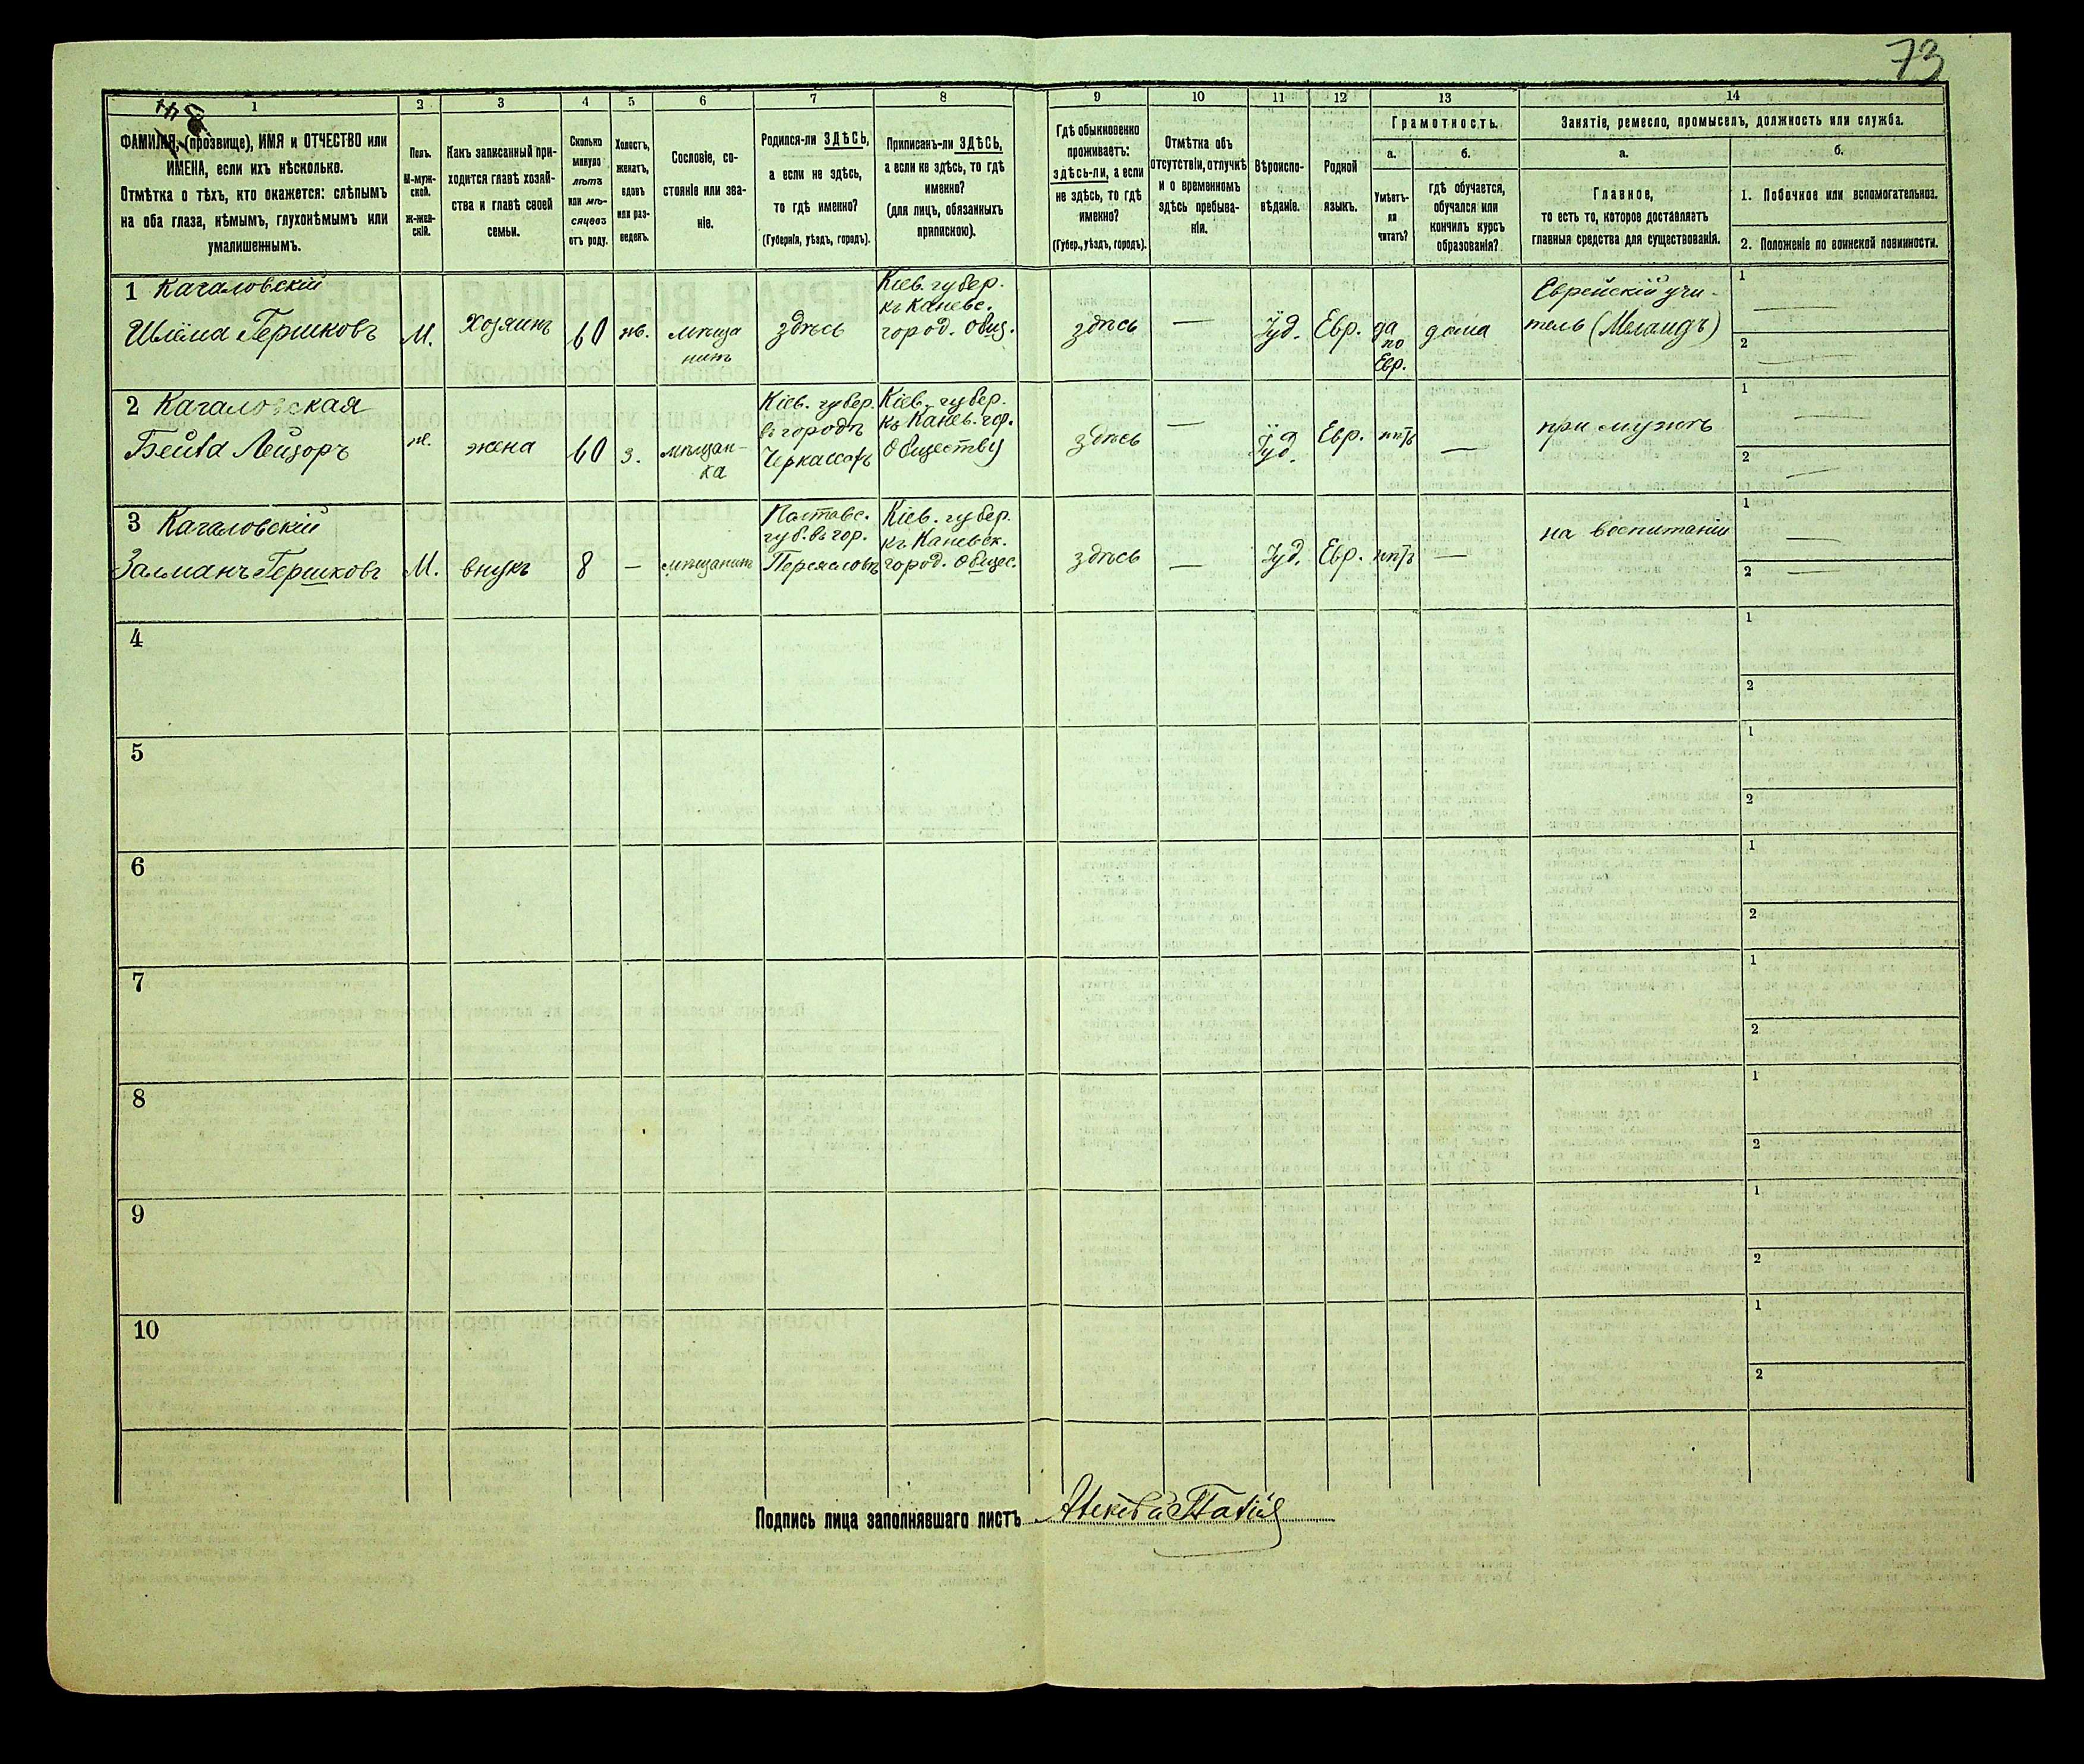 73
1
2
3
4
5
6
7
8
9
10
11
12
13
14
ФАМИЛІЯ, (прозвище), ИМЯ и ОТЧЕСТВО или
ИМЕНА, если ихъ нѣсколько.
Отмѣтка о тѣхъ, кто окажется: слѣпымъ
на оба глаза, нѣмымъ, глухонѣмымъ или
умалишеннымъ.
Полъ.
М-муж-
ской.
Ж-жен-
скій.
Какъ записанный при-
ходится главѣ хозяй-
ства и главѣ своей
семьи.
Сколько
минуло
лѣтъ
или мѣ-
сяцевъ
отъ роду.
Холостъ,
женатъ,
вдовъ
или раз-
веденъ.
Сословіе, со-
стояніе или зва-
ніе.
Родился-ли ЗДѢСЬ,
а если не здѣсь,
то гдѣ именно?
(Губернія, уѣздъ, городъ).
Приписанъ-ли ЗДѢСЬ,
а если не здѣсь, то гдѣ
именно?
(для лицъ, обязанныхъ
припискою).
Гдѣ обыкновенно
проживаетъ:
здѣсь-ли, а если
не здѣсь, то гдѣ
именно?
(Губер., уѣздъ, городъ).
Отмѣтка объ
отсутствіи, отлучкѣ
и о временномъ
здѣсь пребыва-
ніи.
Вѣроиспо-
вѣданіе.
Родной
языкъ.
Грамотность.
а.
Умѣетъ-
ли
читать?
б.
гдѣ обучается,
обучался или
кончилъ курсъ
образованія?
Занятіе, ремесло, промыселъ, должность или служба.
а.
Главное,
то есть то, которое доставляетъ
главныя средства для существованія.
б.
1. Побочное или вспомогательное.
2. Положеніе по воинской повинности.
1 Качаловскій
Шлёма Гершковъ
М.
Хозяинъ
60
жв.
мѣща
нинъ
здѣсь
Кіев. губер.
къ Каневс.
город. общ.
здѣсь
—
Іуд.
Евр.
да
по
Евр.
дома
Еврейскій учи-
тель (Меламдъ)
1 —
2 —
2 Качаловская
Бейла Лейзоръ
ж.
жена
60
з.
мѣщан-
ка
Кіев. губер.
въ городѣ
Черкассахъ
Кіев. губер.
къ Канев. гор.
Обществу
здѣсь
—
Іуд.
Евр.
нѣтъ
—
при мужѣ
1 —
2 —
3 Качаловскій
Залманъ Гершковъ
М.
внукъ
8
—
мѣщанинъ
Полтавс.
губ. въ гор.
Переяславѣ
Кіев. губер.
къ Каневск.
город. общес.
здѣсь
—
Іуд.
Евр.
нѣтъ
—
на воспитаніи
1 —
2 —
4
1
2
5
1
2
6
1
2
7
1
2
8
1
2
9
1
2
10
1
2
Подпись лица заполнявшаго листъ